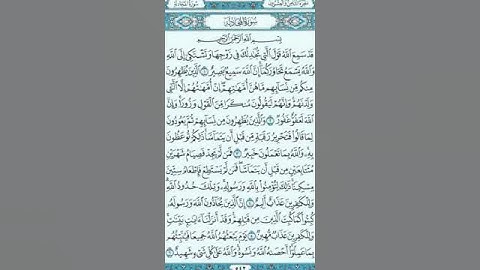 سُورَةُ المُجَادلة
بِسْمِ اللَّهِ الرَّحْمَٰنِ الرَّحِيمِ
قَدْ سَمِعَ اللَّهُ قَوْلَ الَّتِي تُجَادِلُكَ فِي زَوْجِهَا وَتَشْتَكِي إِلَى اللَّهِ
وَاللَّهُ يَسْمَعُ تَحَاوُرَكُمَا إِنَّ اللَّهَ سَمِيعٌ بَصِيرٌ ١ الَّذِينَ يُظَاهِرُونَ
مِنكُم مِّن نِّسَائِهِم مَّا هُنَّ أُمَّهَاتِهِمْ إِنْ أُمَّهَاتُهُمْ إِلَّا الَّٰئِي
وَلَدْنَهُمْ وَإِنَّهُمْ لَيَقُولُونَ مُنكَرًا مِّنَ الْقَوْلِ وَزُورًا وَإِنَّ
اللَّهَ لَعَفُوٌّ غَفُورٌ ٢ وَالَّذِينَ يُظَاهِرُونَ مِن نِّسَائِهِمْ ثُمَّ يَعُودُونَ
لِمَا قَالُوا فَتَحْرِيرُ رَقَبَةٍ مِّن قَبْلِ أَن يَتَمَاسَّا ذَٰلِكُمْ تُوعَظُونَ
بِهِ وَاللَّهُ بِمَا تَعْمَلُونَ خَبِيرٌ ٣ فَمَن لَّمْ يَجِدْ فَصِيَامُ شَهْرَيْنِ
مُتَتَابِعَيْنِ مِن قَبْلِ أَن يَتَمَاسَّا فَمَن لَّمْ يَسْتَطِعْ فَإِطْعَامُ سِتِّينَ
مِسْكِينًا ذَٰلِكَ لِتُؤْمِنُوا بِاللَّهِ وَرَسُولِهِ وَتِلْكَ حُدُودُ اللَّهِ
وَلِلْكَافِرِينَ عَذَابٌ أَلِيمٌ ٤ إِنَّ الَّذِينَ يُحَادُّونَ اللَّهَ وَرَسُولَهُ
كُبِتُوا كَمَا كُبِتَ الَّذِينَ مِن قَبْلِهِمْ وَقَدْ أَنزَلْنَا آيَاتٍ بَيِّنَاتٍ
وَلِلْكَافِرِينَ عَذَابٌ مُّهِينٌ ٥ يَوْمَ يَبْعَثُهُمُ اللَّهُ جَمِيعًا فَيُنَبِّئُهُم
بِمَا عَمِلُوا أَحْصَاهُ اللَّهُ وَنَسُوهُ وَاللَّهُ عَلَىٰ كُلِّ شَيْءٍ شَهِيدٌ ٦
٥٤٢